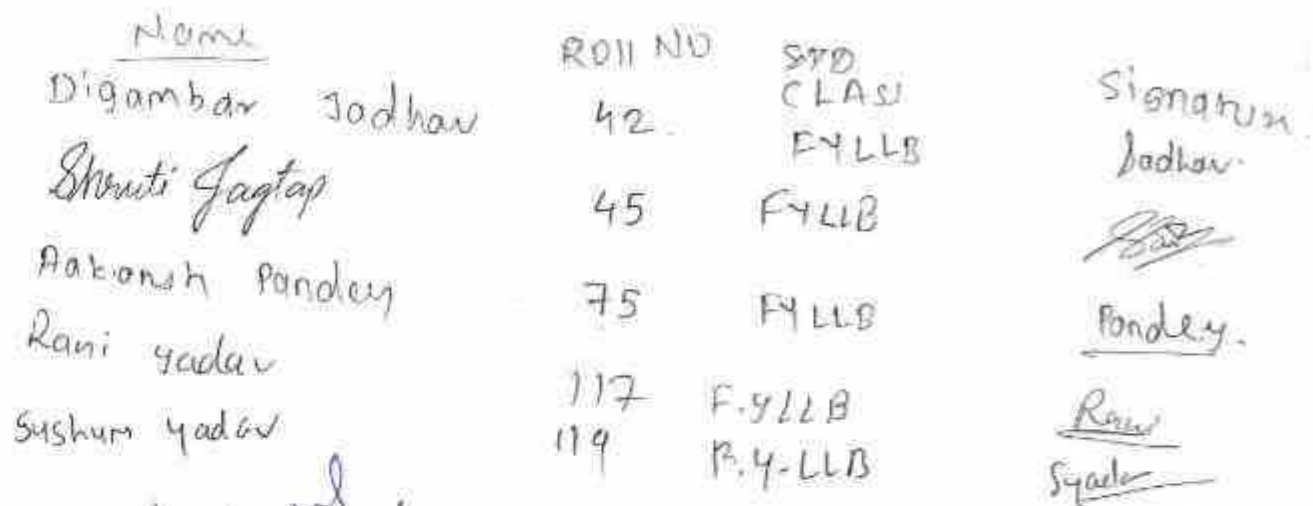 Name ROll NO STD CLASS Signature
Digambar Jadhav 42. FYLLB Jadhav.
Shruti Jagtap 45 FYLLB
Aakansh Pandey 75 FYLLB Pandey.
Rani yadav 117 F.YLLB Rani
Sushum yadav 119 F.Y-LLB Syadav